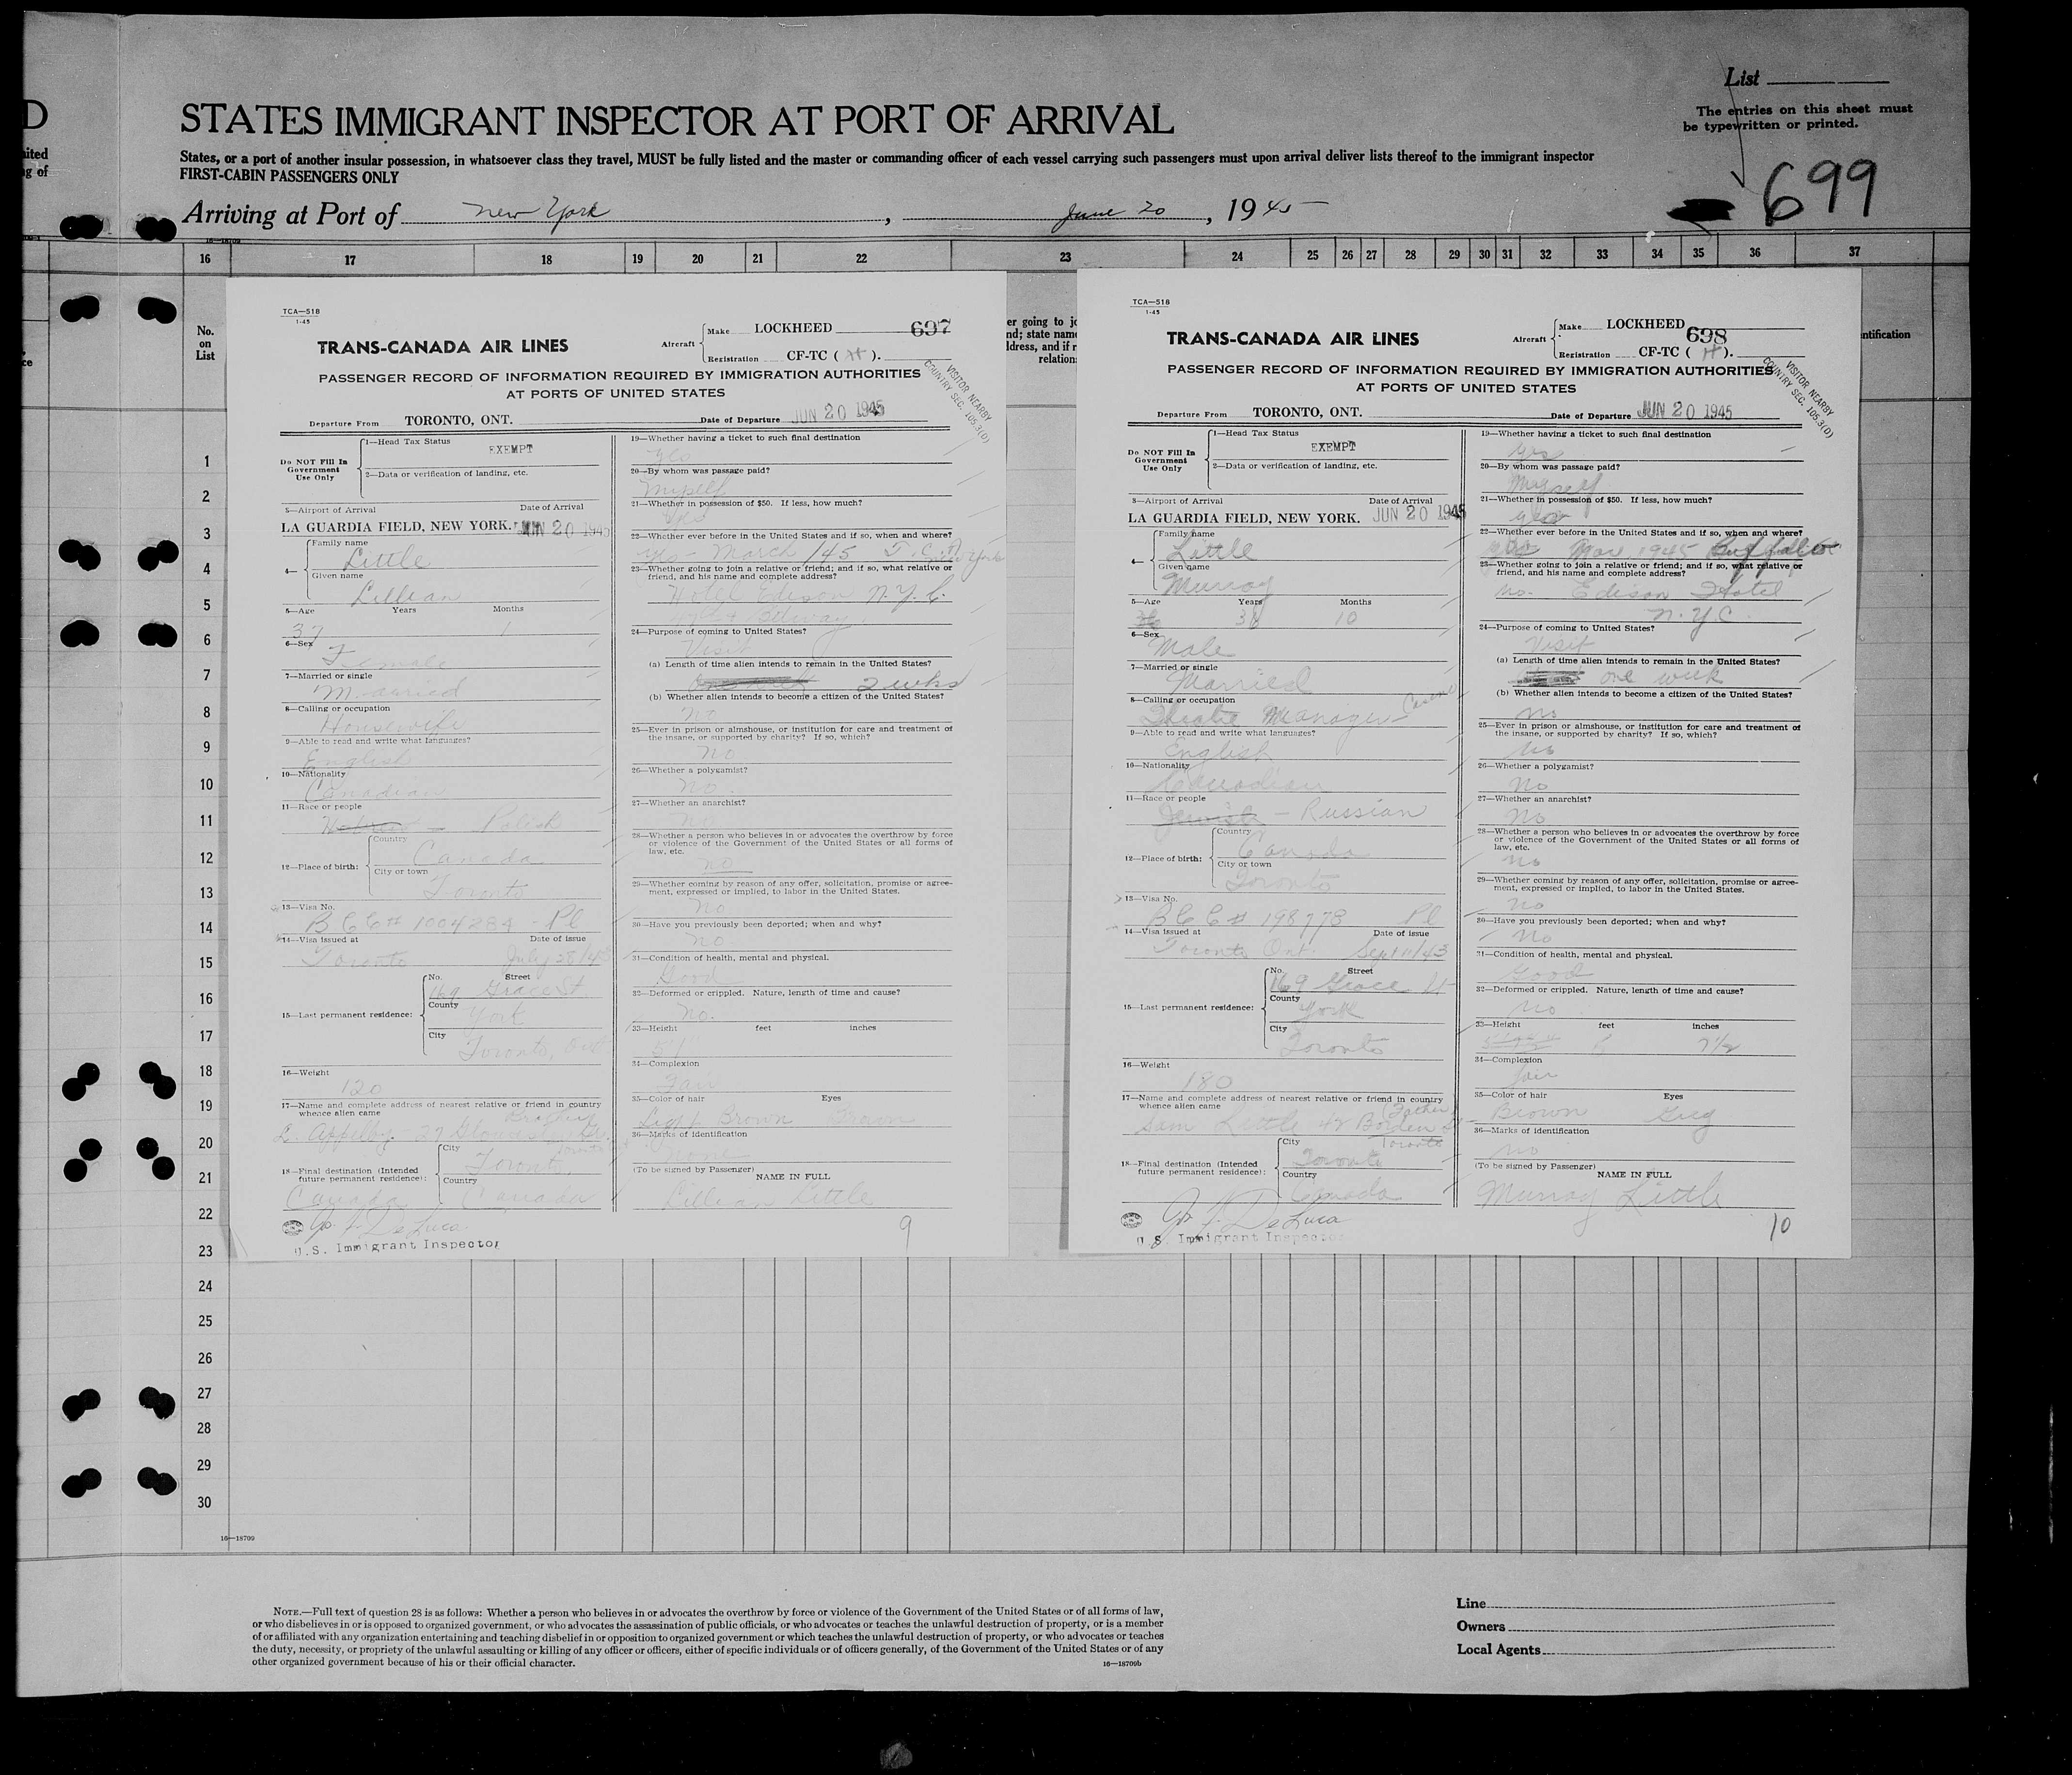 List
The entries on this sheet must
be typewritten or printed.
D
STATES IMMIGRANT INSPECTOR AT PORT OF ARRIVAL
ited
g of
States, or a port of another insular possession, in whatsoever class they travel, MUST be fully listed and the master or commanding officer of each vessel carrying such passengers must upon arrival deliver lists thereof to the immigrant inspector
FIRST-CABIN PASSENGERS ONLY
699
Arriving at Port of New York, June 20, 1945
16—18709
16 17 18 19 20 21 22 23 24 25 26 27 28 29 30 31 32 33 34 35 36 37
No.
on
List
ce
er going to jo
nd; state name
ddress, and if r
relation
ntification
1
2
3
4
5
6
7
8
9
10
11
12
13
14
15
16
17
18
19
20
21
22
23
24
25
26
27
28
29
30
TCA—518
1-45
TRANS-CANADA AIR LINES
Aircraft
Make LOCKHEED 697
Registration CF-TC ( H ).
PASSENGER RECORD OF INFORMATION REQUIRED BY IMMIGRATION AUTHORITIES
AT PORTS OF UNITED STATES
VISITOR NEARBY
COUNTRY SEC. 105.3(D)
Departure From TORONTO, ONT. Date of Departure JUN 20 1945
Do NOT Fill In
Government
Use Only
1—Head Tax Status
EXEMPT
2—Data or verification of landing, etc.
3—Airport of Arrival Date of Arrival
LA GUARDIA FIELD, NEW YORK. JUN 20 1945
4— Family name
Little
Given name
Lillian
5—Age Years Months
37 1
6—Sex
Female
7—Married or single
Married
8—Calling or occupation
Housewife
9—Able to read and write what languages?
English
10—Nationality
Canadian
11—Race or people
Hebrew — Polish
12—Place of birth:
Country
Canada
City or town
Toronto
13—Visa No.
B C C # 1004284 - Pl
14—Visa issued at Date of issue
Toronto July 28/43
15—Last permanent residence:
No. Street
169 Grace St
County
York
City
Toronto, Ont.
16—Weight
120
17—Name and complete address of nearest relative or friend in country
whence alien came
Brother
L. Appelby - 27
Toronto
18—Final destination (Intended
future permanent residence):
City
Toronto,
Country
Canada Canada
Jos. F. DeLuca
U.S. Immigrant Inspector
19—Whether having a ticket to such final destination
Yes
20—By whom was passage paid?
Myself
21—Whether in possession of $50. If less, how much?
Yes
22—Whether ever before in the United States and if so, when and where?
Yes - March /45 New York
23—Whether going to join a relative or friend; and if so, what relative or
friend, and his name and complete address?
Hotel Edison N.Y.C.
24—Purpose of coming to United States?
Visit
(a) Length of time alien intends to remain in the United States?
2 wks
(b) Whether alien intends to become a citizen of the United States?
No
25—Ever in prison or almshouse, or institution for care and treatment of
the insane, or supported by charity? If so, which?
No
26—Whether a polygamist?
No.
27—Whether an anarchist?
No
28—Whether a person who believes in or advocates the overthrow by force
or violence of the Government of the United States or all forms of
law, etc.
no
29—Whether coming by reason of any offer, solicitation, promise or agree-
ment, expressed or implied, to labor in the United States.
No
30—Have you previously been deported; when and why?
No
31—Condition of health, mental and physical.
Good
32—Deformed or crippled. Nature, length of time and cause?
No.
33—Height feet inches
5'1"
34—Complexion
Fair
35—Color of hair Eyes
Light Brown Brown
36—Marks of identification
None
(To be signed by Passenger) NAME IN FULL
Lillian Little
9
TCA—518
1-45
TRANS-CANADA AIR LINES
Aircraft
Make LOCKHEED 698
Registration CF-TC ( H ).
PASSENGER RECORD OF INFORMATION REQUIRED BY IMMIGRATION AUTHORITIES
AT PORTS OF UNITED STATES
VISITOR NEARBY
COUNTRY SEC. 105.3(D)
Departure From TORONTO, ONT. Date of Departure JUN 20 1945
Do NOT Fill In
Government
Use Only
1—Head Tax Status
EXEMPT
2—Data or verification of landing, etc.
3—Airport of Arrival Date of Arrival
LA GUARDIA FIELD, NEW YORK. JUN 20 1945
4— Family name
Little
Given name
Murray
5—Age Years Months
38 10
6—Sex
Male
7—Married or single
Married
8—Calling or occupation
Theatre Manager - Casino
9—Able to read and write what languages?
English
10—Nationality
Canadian
11—Race or people
Jewish - Russian
12—Place of birth:
Country
Canada
City or town
Toronto
13—Visa No.
B C C # 198778 Pl
14—Visa issued at Date of issue
Toronto Ont. Sept 11/43
15—Last permanent residence:
No. Street
169 Grace St
County
York
City
Toronto
16—Weight
180
17—Name and complete address of nearest relative or friend in country
whence alien came
(Father)
Sam Little 42 Borden St
Toronto
18—Final destination (Intended
future permanent residence):
City
Toronto
Country
Canada
Jos. F. DeLuca
U.S. Immigrant Inspector
19—Whether having a ticket to such final destination
Yes
20—By whom was passage paid?
Myself
21—Whether in possession of $50. If less, how much?
Yes
22—Whether ever before in the United States and if so, when and where?
Yes Mar 1945 Buffalo
23—Whether going to join a relative or friend; and if so, what relative or
friend, and his name and complete address?
no. Edison Hotel
N.Y.C.
24—Purpose of coming to United States?
Visit
(a) Length of time alien intends to remain in the United States?
one week
(b) Whether alien intends to become a citizen of the United States?
no
25—Ever in prison or almshouse, or institution for care and treatment of
the insane, or supported by charity? If so, which?
No
26—Whether a polygamist?
No
27—Whether an anarchist?
No
28—Whether a person who believes in or advocates the overthrow by force
or violence of the Government of the United States or all forms of
law, etc.
no
29—Whether coming by reason of any offer, solicitation, promise or agree-
ment, expressed or implied, to labor in the United States.
no
30—Have you previously been deported; when and why?
No
31—Condition of health, mental and physical.
Good
32—Deformed or crippled. Nature, length of time and cause?
No
33—Height feet inches
5 7½
34—Complexion
fair
35—Color of hair Eyes
Brown Grey
36—Marks of identification
no
(To be signed by Passenger) NAME IN FULL
Murray Little
10
16—18709
NOTE.—Full text of question 28 is as follows: Whether a person who believes in or advocates the overthrow by force or violence of the Government of the United States or of all forms of law,
or who disbelieves in or is opposed to organized government, or who advocates the assassination of public officials, or who advocates or teaches the unlawful destruction of property, or is a member
of or affiliated with any organization entertaining and teaching disbelief in or opposition to organized government or which teaches the unlawful destruction of property, or who advocates or teaches
the duty, necessity, or propriety of the unlawful assaulting or killing of any officer or officers, either of specific individuals or of officers generally, of the Government of the United States or of any
other organized government because of his or their official character.
16—18709b
Line
Owners
Local Agents